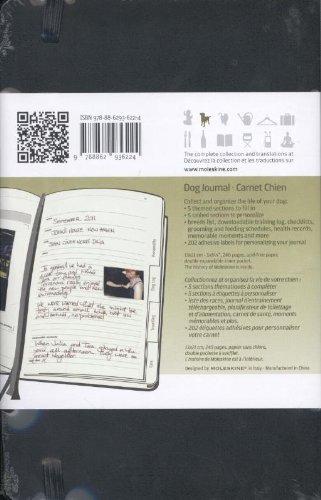 ISBN 978-88-6293-622-4
9 788862 936224
The complete collection and translations at
Découvrez la collection et les traductions sur
www.moleskine.com
Dog Journal · Carnet Chien
Collect and organize the life of your dog:
• 5 themed sections to fill in
• 5 tabbed sections to personalize
• breeds list, downloadable training log, checklists,
grooming and feeding schedules, health records,
memorable moments and more
• 202 adhesive labels for personalizing your journal
13x21 cm · 5x8¼", 240 pages, acid-free paper,
double expandable inner pocket.
The history of Moleskine is inside.
Collectionnez et organisez la vie de votre chien :
• 5 sections thématiques à compléter
• 5 sections à étiquettes à personnaliser
• liste des races, journal d'entraînement
téléchargeable, planificateur de toilettage
et d'alimentation, carnet de santé, moments
mémorables et plus.
• 202 étiquettes adhésives pour personnaliser
votre carnet
13x21 cm, 240 pages, papier sans chlore,
double pochette à soufflet.
L'histoire de Moleskine est à l'intérieur.
Designed by MOLESKINE® in Italy · Manufactured in China
September 2011